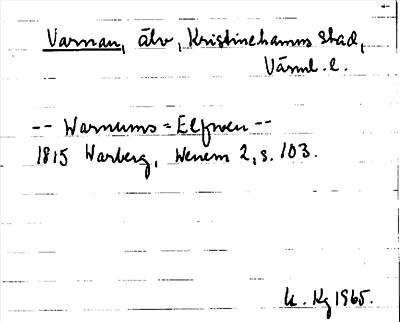 Varnan, älv, Kristinehamns stad,
Värml. l.
-- Warnums=Elfwen --
1815 Warberg, Wenern 2, s. 103.
Kg 1965.